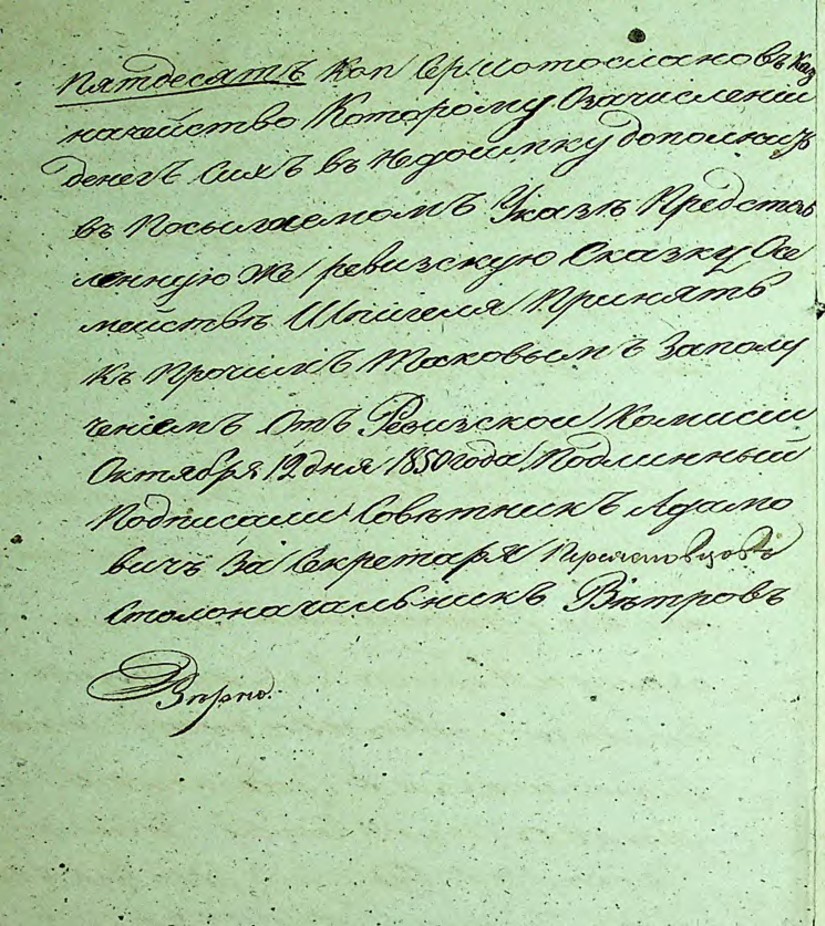 Пятдесятъ коп Сер. отослано въ Каз
начейство Которому Озачисленіи
денегъ Сихъ въ Недоимку дополнить
въ Посылаемомъ Указѣ Представ
ленную же ревизскую Сказку Осе
мействѣ Шпигеля Принять
Къ Прочимъ Таковымъ Заполу
ченіемъ Отъ Ревизской Комисіи
Октября 12 дня 1850 года Подлинный
Подписали Совѣтникъ Адамо
вичъ За Секретаря
Столоначальникъ Вѣтровъ
Вѣрно.